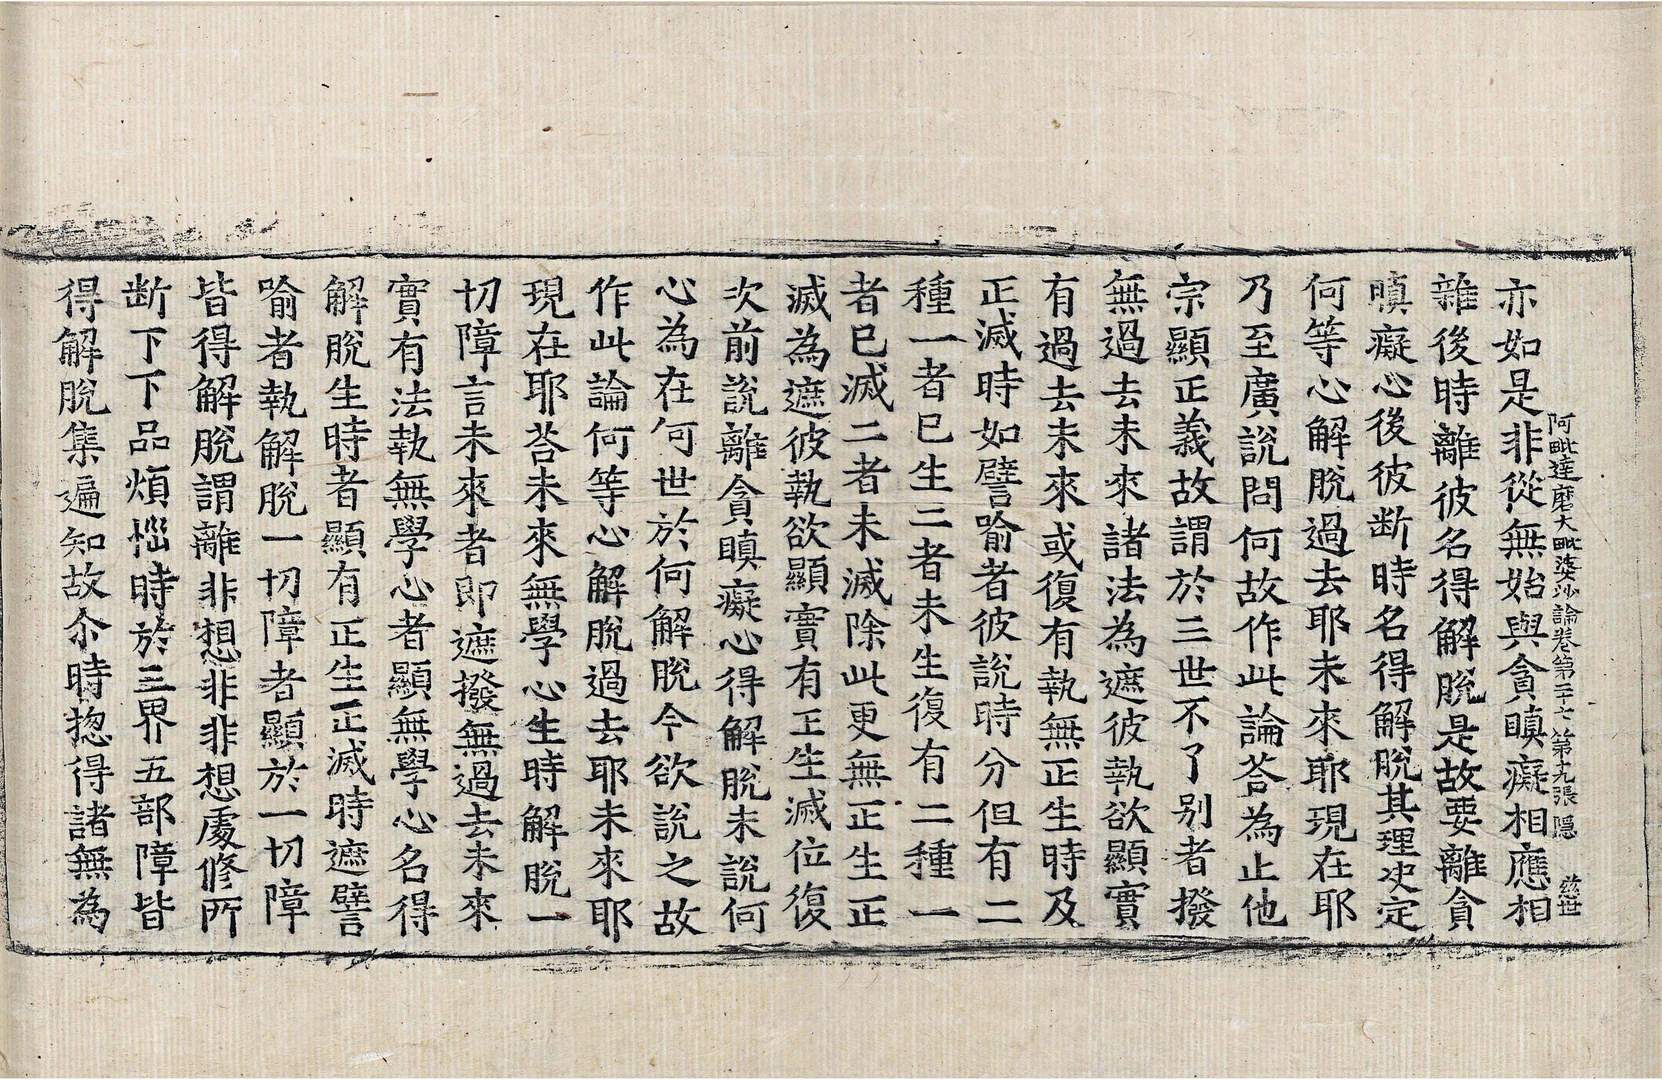 阿毗達磨大毗婆沙論卷第二十七 第十九張 隱 慈世
亦如是非從無始與貪瞋癡相應相
雜後時離彼名得解脫是故要離貪
瞋癡心後彼断時名得解脫其理决定
何等心解脫過去耶未來耶現在耶
乃至廣說問何故作此論荅為止他
宗顯正義故謂於三世不了别者撥
無過去未來諸法為遮彼執欲顯實
有過去未來或復有執無正生時及
正滅時如譬喻者彼說時分但有二
種一者已生二者未生復有二種一
者已滅二者未滅除此更無正生正
滅為遮彼執欲顯實有正生滅位復
次前說離貪瞋癡心得解脫未說何
心為在何世於何解脫今欲說之故
作此論何等心解脫過去耶未來耶
現在耶荅未來無學心生時解脫一
切障言未來者即遮撥無過去未來
實有法執無學心者顯無學心名得
解脫生時者顯有正生正滅時遮譬
喻者執解脫一切障者顯於一切障
皆得解脫謂離非想非非想處修所
断下下品煩惱時於三界五部障皆
得解脫集遍知故尒時揔得諸無為